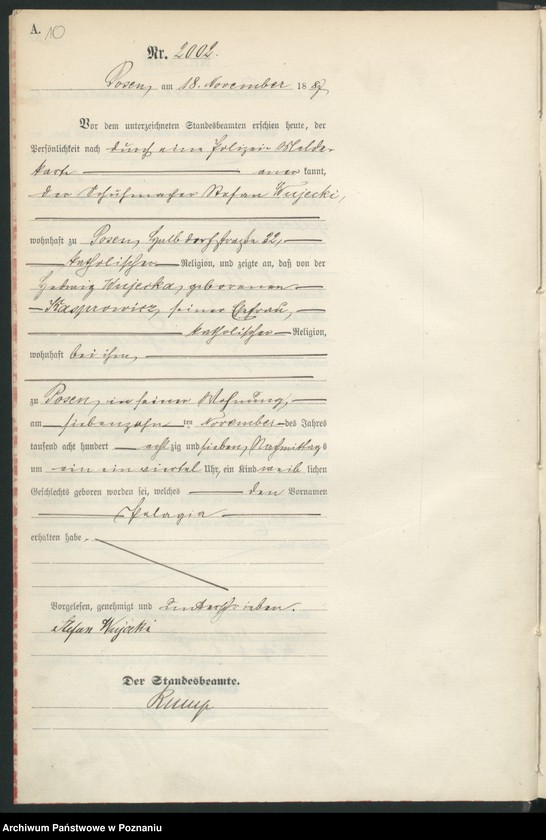 A. 10
Nr. 2002.
Posen, am 18. November 1887
Vor dem unterzeichneten Standesbeamten erschien heute, der
Persönlichkeit nach durch eine Polizei-Melde-
karte anerkannt,
der Schuhmacher Stefan Wujecki,
wohnhaft zu Posen, Halbdorfstraße 22,
katholischer Religion, und zeigte an, daß von der
Hedwig Wujecka, geborenen
Kasprowicz, seiner Ehefrau,
katholischer Religion,
wohnhaft bei ihm,
zu Posen, in seiner Wohnung,
am siebenzehnten November des Jahres
tausend acht hundert achtzig und sieben, Nachmittags
um ein ein viertel Uhr, ein Kind weiblichen
Geschlechts geboren worden sei, welches den Vornamen
Pelagia
erhalten habe.
Vorgelesen, genehmigt und unterschrieben.
Stefan Wujecki
Der Standesbeamte.
Archiwum Państwowe w Poznaniu